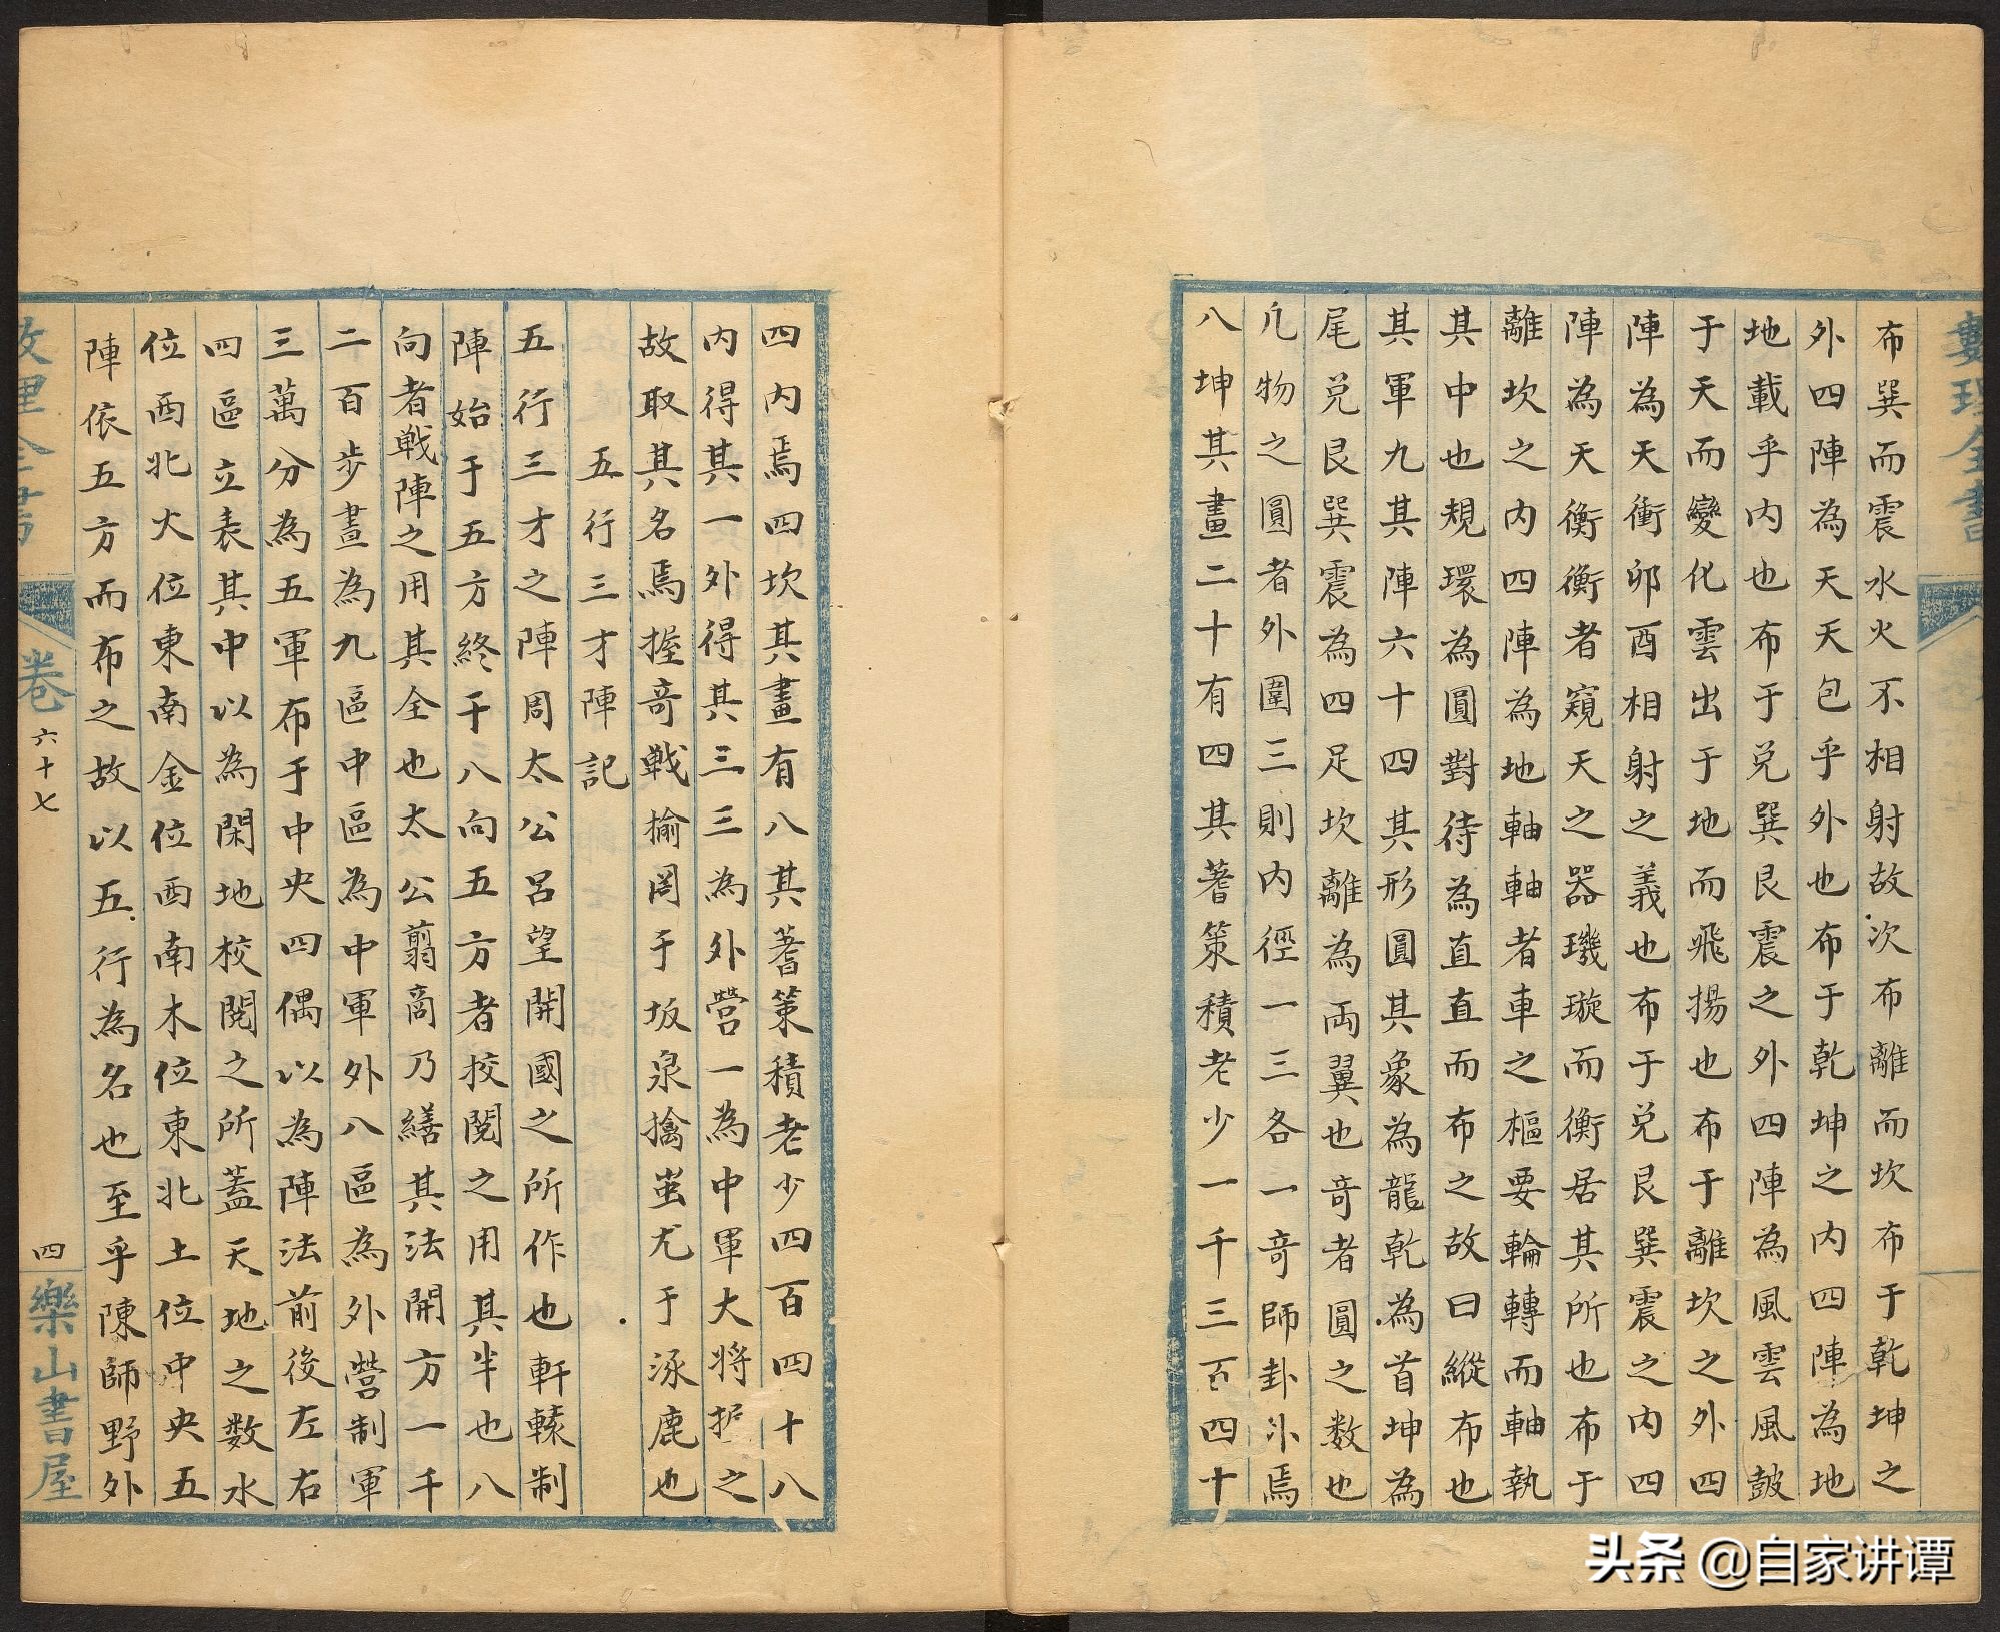 布巽而震水火不相射故次布離而坎布于乾坤之
外四陣為天天包乎外也布于乾坤之內四陣為地
地載乎內也布于兌巽艮震之外四陣為風雲風皷
于天而變化雲出于地而飛揚也布于離坎之外四
陣為天衝卯酉相射之義也布于兌艮巽震之內四
陣為天衡衡者窺天之器璣璇而衡居其所也布于
離坎之內四陣為地軸軸者車之樞要輪轉而軸執
其中也規環為圓對待為直直而布之故曰縱布也
其軍九其陣六十四其形圓其象為龍乾為首坤為
尾兌艮巽震為四足坎離為両翼也竒者圓之数也
凢物之圓者外圍三則內徑一三各一竒師卦外焉
八坤其畫二十有四其蓍策積老少一千三百四十
四內焉四坎其畫有八其蓍策積老少四百四十八
內得其一外得其三三為外營一為中軍大將护之
故取其名焉握竒戰揄罔于坂泉擒蚩尤于涿鹿也
五行三才陣記
五行三才之陣周太公呂望開國之所作也軒轅制
陣始于五方終于八向五方者校閱之用其半也八
向者戰陣之用其全也太公翦商乃繕其法開方一千
二百步畫為九區中區為中軍外八區為外營制軍
三萬分為五軍布于中央四偶以為陣法前後左右
四區立表其中以為閑地校閱之所蓋天地之数水
位酉北火位東南金位西南木位東北土位中央五
陣依五方而布之故以五行為名也至乎陳師野外
卷六十七
四
樂山書屋
數理全書
头条 @自家讲谭